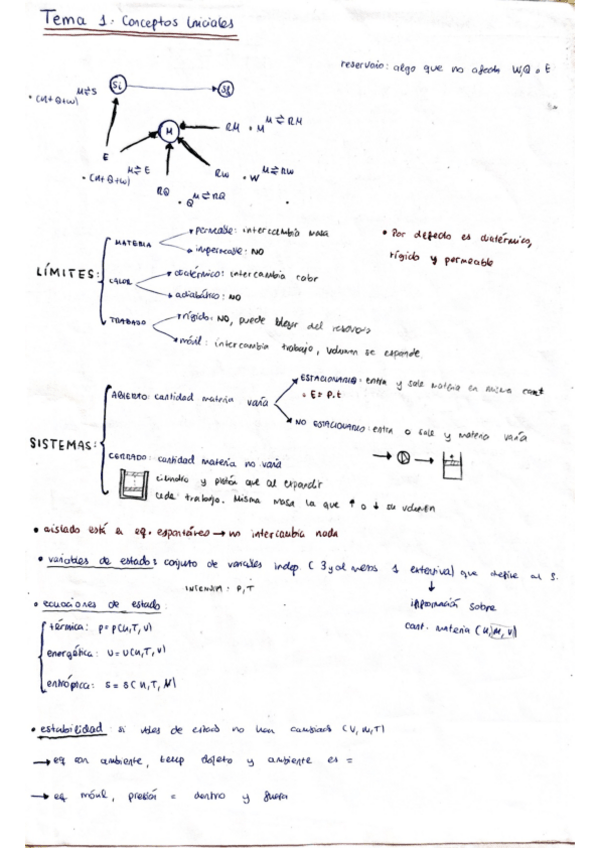 Tema 1: Conceptos Iniciales
reservorio: algo que no afecta W,Q o E
Si
Sf
M⇌S
• (M+Q+W)
M
RM • M M⇌RM
E
M⇌E
• (M+Q+W)
RQ • Q M⇌RQ
RW • W M⇌RW
LÍMITES:
MATERIA
permeable: intercambia masa
impermeable: NO
CALOR
diatérmico: intercambia calor
adiabático: NO
TRABAJO
rígido: NO, puede del reservorio
móvil: intercambia trabajo, volumen se expande.
• Por defecto es diatérmico,
rígido y permeable
SISTEMAS:
ABIERTO: cantidad materia varía
ESTACIONARIO: entra y sale materia en misma cant
NO ESTACIONARIO: entra o sale y materia varía
CERRADO: cantidad materia no varía
cilindro y pistón que al expandir
cede trabajo. Misma masa la que ↑ o ↓ su volumen
• aislado está en eq. espontáneo → no intercambia nada
• variables de estado: conjunto de variables indep ( 3 y al menos 1 extensiva) que define al S.
INTENSIVA: P, T
↓
información sobre
cant. materia (U, M, V)
• ecuaciones de estado:
térmica: P = P(U,T,V)
energética: U = U(U,T,V)
entrópica: S = S(U,T,V)
• estabilidad: si vbles de estado no han cambiado (V, M, T)
→ eq con ambiente, temp objeto y ambiente es =
→ eq móvil, presión = dentro y fuera